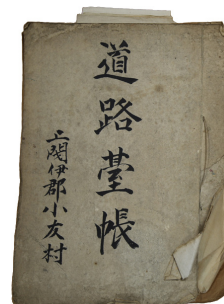 道路䑓帳
上閉伊郡小友村